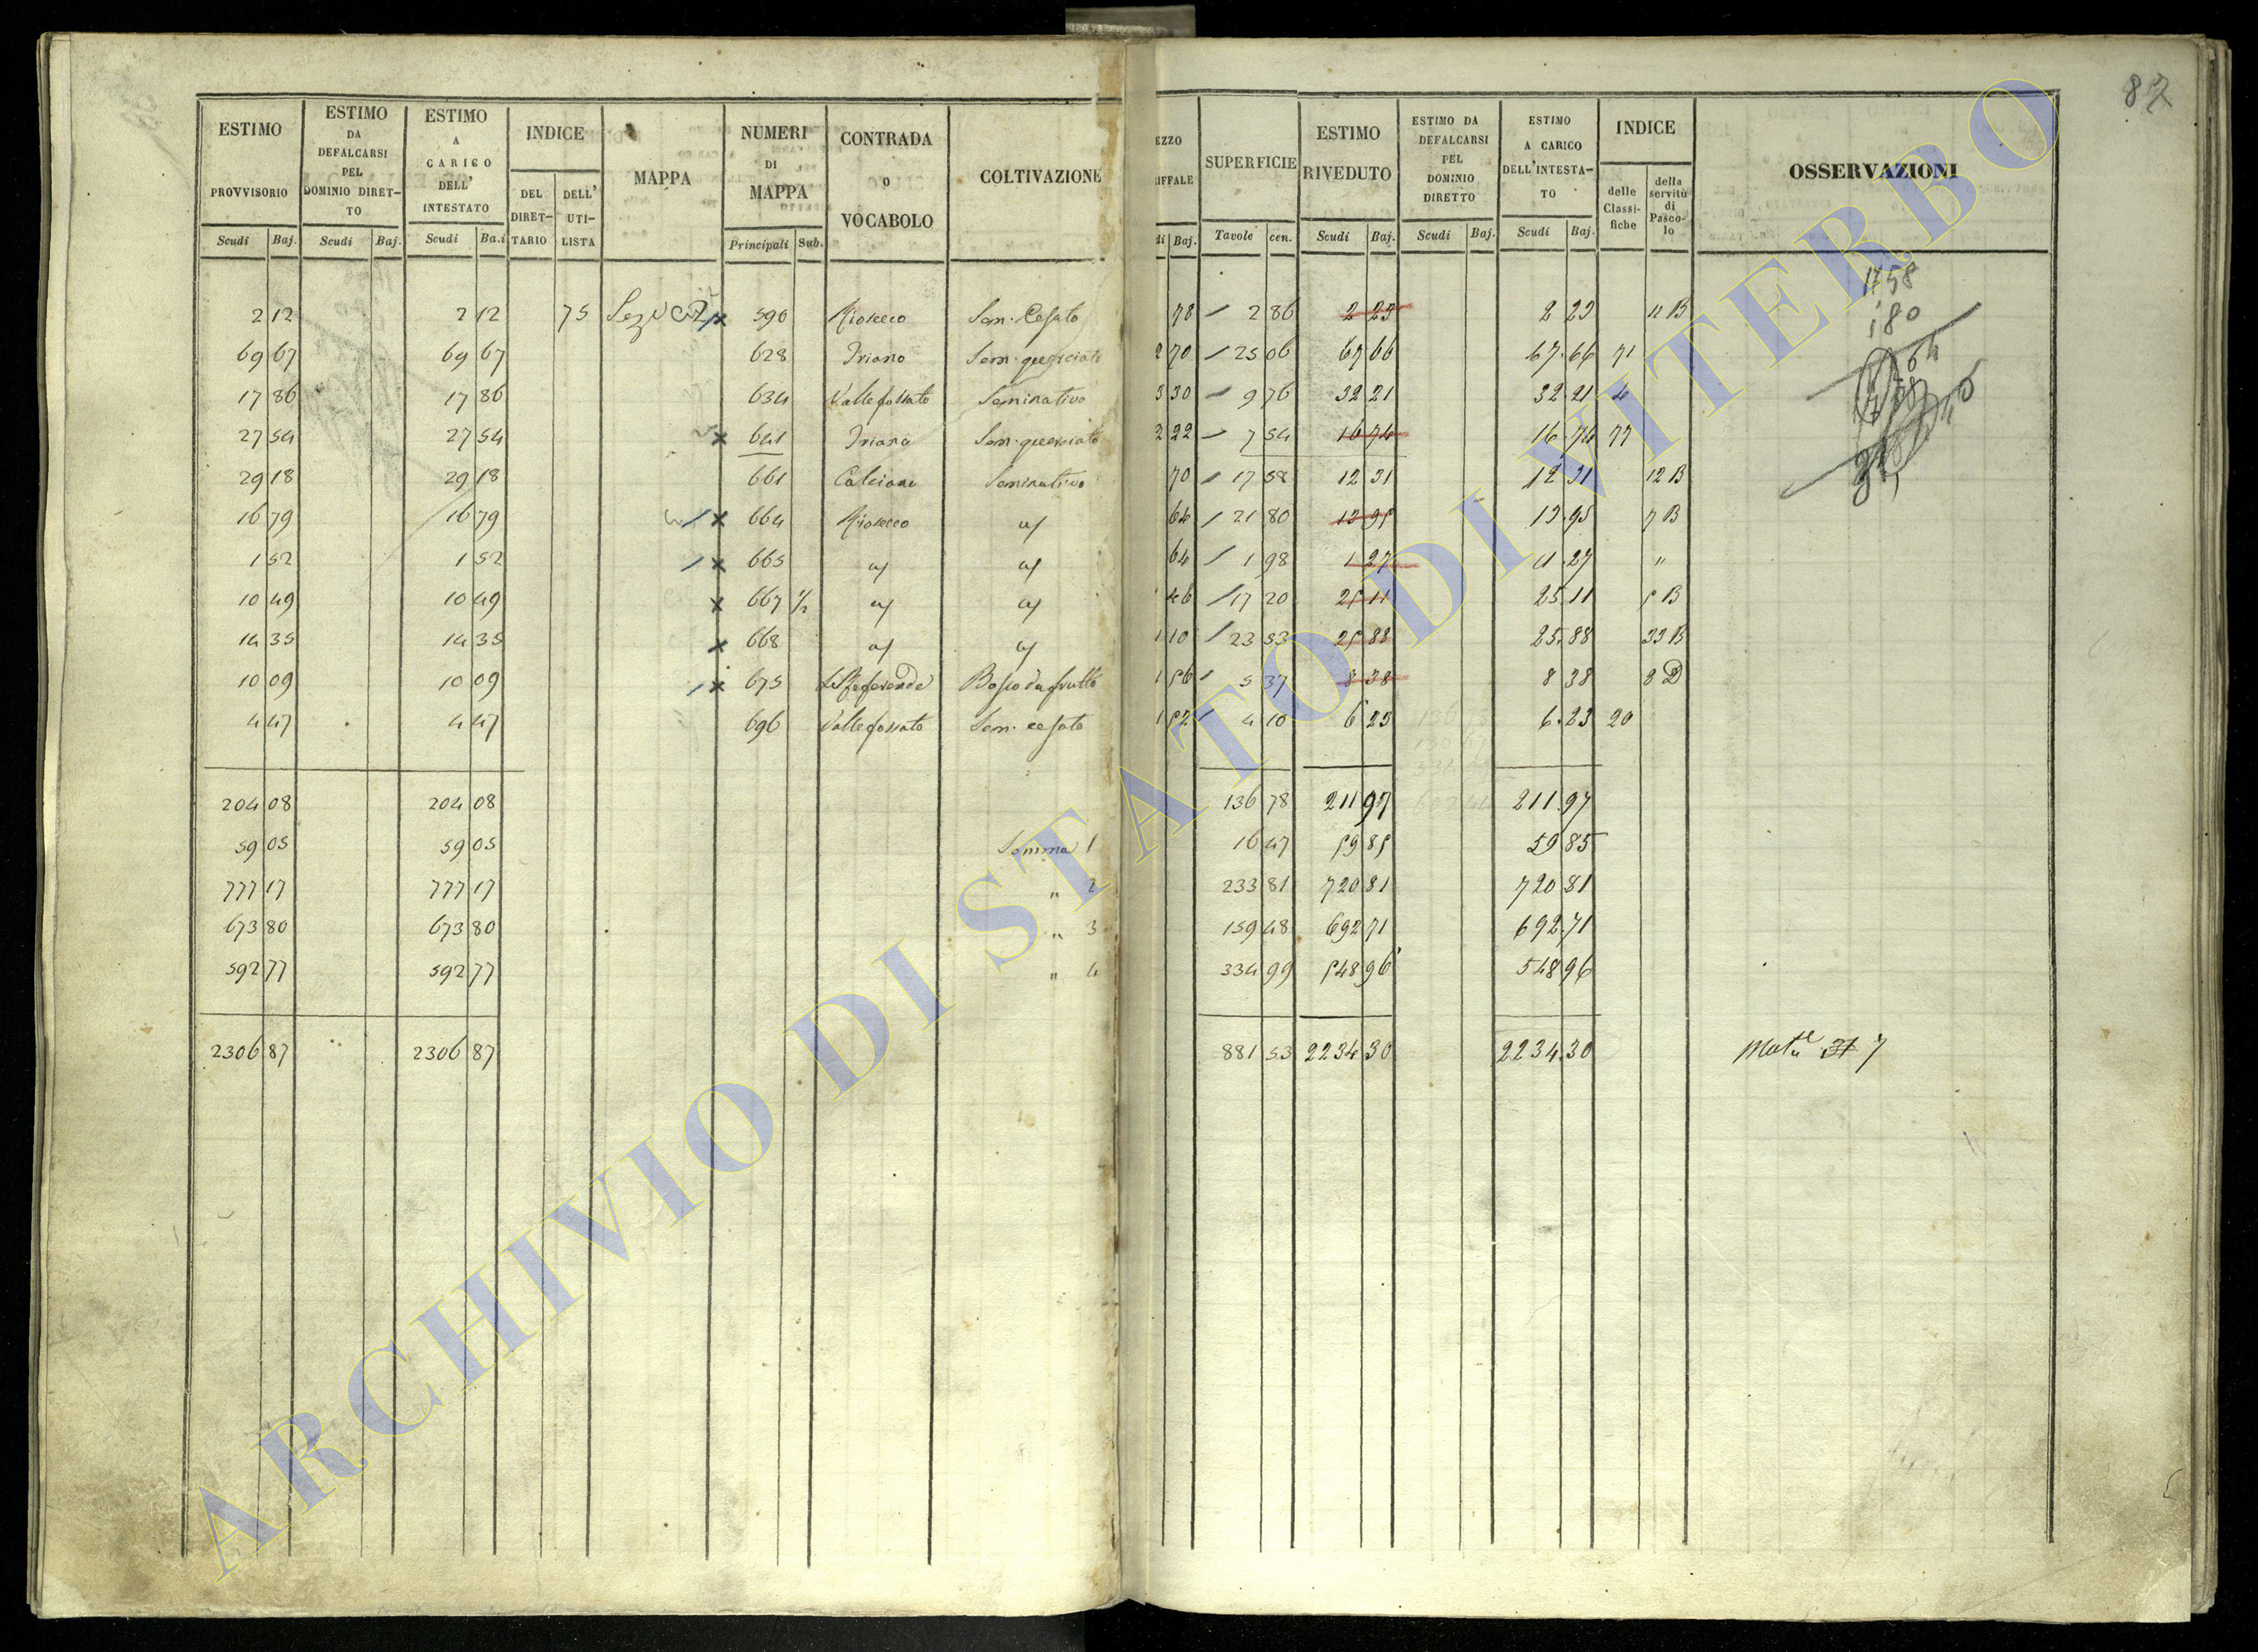 87
ESTIMO PROVVISORIO
ESTIMO DA DEFALCARSI PEL DOMINIO DIRETTO
ESTIMO A CARICO DELL' INTESTATO
INDICE
DEL DIRETTARIO
DELL' UTILISTA
MAPPA
NUMERI DI MAPPA
CONTRADA O VOCABOLO
COLTIVAZIONE
EZZO
IFFALE
SUPERFICIE
ESTIMO RIVEDUTO
ESTIMO DA DEFALCARSI PEL DOMINIO DIRETTO
ESTIMO A CARICO DELL'INTESTATO
INDICE
delle Classifiche
della servitù di Pascolo
OSSERVAZIONI
Scudi Baj. Scudi Baj. Scudi Ba.i Principali Sub. di Baj. Tavole cen. Scudi Baj. Scudi Baj. Scudi Baj.
2 12 2 12 75 590 Riosecco Sem. Cesato 78 2 86 2 23 2 23 11 B
69 67 69 67 628 Iriano Sem. querciato 2 70 25 06 67 66 67.66 71
17 86 17 86 634 Vallefossato Seminativo 3 30 9 76 32 21 32.21 4
27 54 27 54 x 641 Iriano Sem. querciato 2 22 7 54 16 74 16.74 77
29 18 29 18 661 Calcione Seminativo 70 17 58 12 31 12 31 12 B
16 79 16 79 x 664 Riosecco 64 21 80 13 95 13.95 7 B
1 52 1 52 x 665 64 1 98 1 27 1.27 "
10 49 10 49 x 667 1/2 1 46 17 20 25 11 25.11 5 B
14 35 14 35 x 668 1 10 23 53 25 88 25.88 33 B
10 09 10 09 x 675 Bosco da frutto 1 56 5 37 8 38 8 38 8 D
4 47 4 47 696 Vallefossato Sem. cesato 1 52 4 10 6 23 6.23 20
204 08 204 08 136 78 211 97 211.97
59 05 59 05 Somma 1 16 47 59 85 59 85
777 17 777 17 " 2 233 81 720 81 720 81
673 80 673 80 " 3 159 48 692 71 692.71
592 77 592 77 " 4 334 99 548 96 548 96
2306 87 2306 87 881 53 2234 30 2234.30
ARCHIVIO DI STATO DI VITERBO